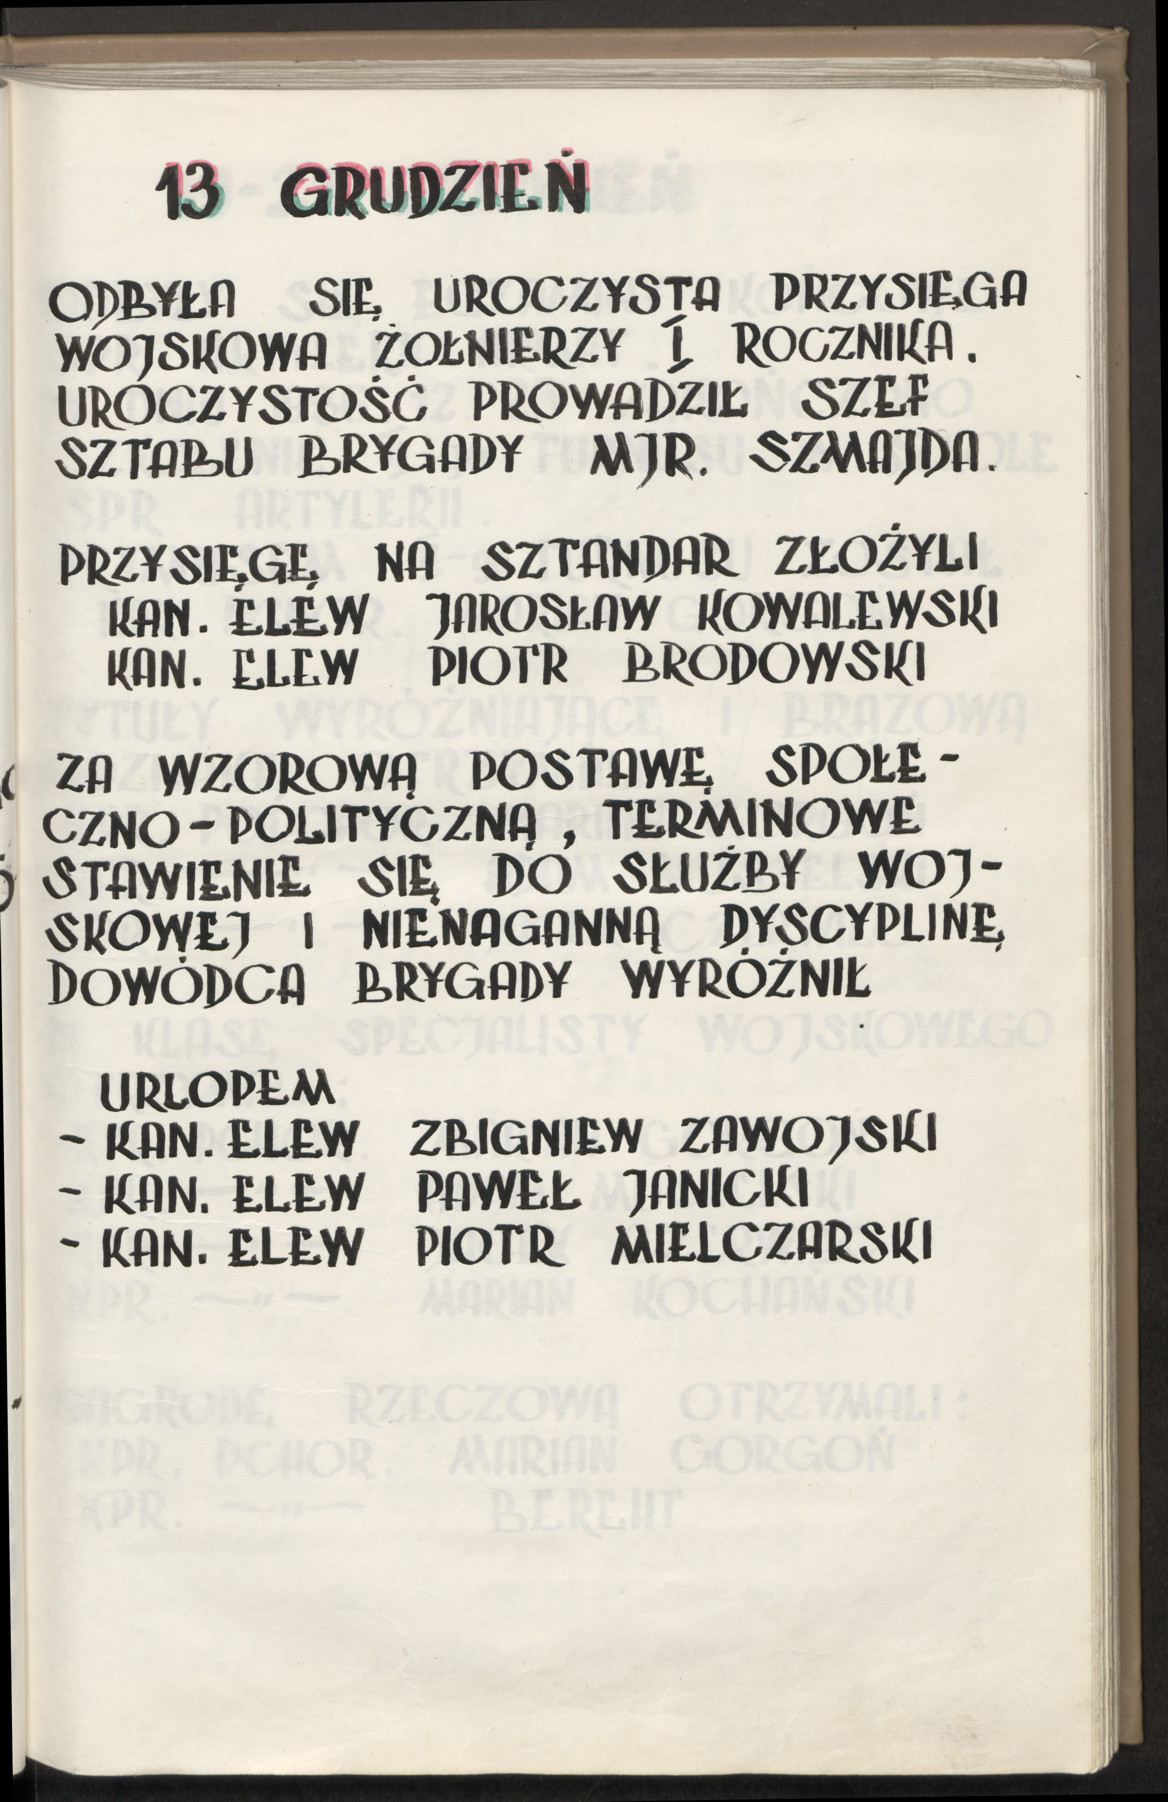 13 GRUDZIEŃ
ODBYŁA SIĘ UROCZYSTA PRZYSIĘGA
WOJSKOWA ŻOŁNIERZY I ROCZNIKA.
UROCZYSTOŚĆ PROWADZIŁ SZEF
SZTABU BRYGADY MJR. SZMAJDA.
PRZYSIĘGĘ NA SZTANDAR ZŁOŻYLI
KAN. ELEW JAROSŁAW KOWALEWSKI
KAN. ELEW PIOTR BRODOWSKI
ZA WZOROWĄ POSTAWĘ SPOŁE-
CZNO-POLITYCZNĄ, TERMINOWE
STAWIENIE SIĘ DO SŁUŻBY WOJ-
SKOWEJ I NIENAGANNĄ DYSCYPLINĘ
DOWÓDCA BRYGADY WYRÓŻNIŁ
URLOPEM
- KAN. ELEW ZBIGNIEW ZAWOJSKI
- KAN. ELEW PAWEŁ JANICKI
- KAN. ELEW PIOTR MIELCZARSKI